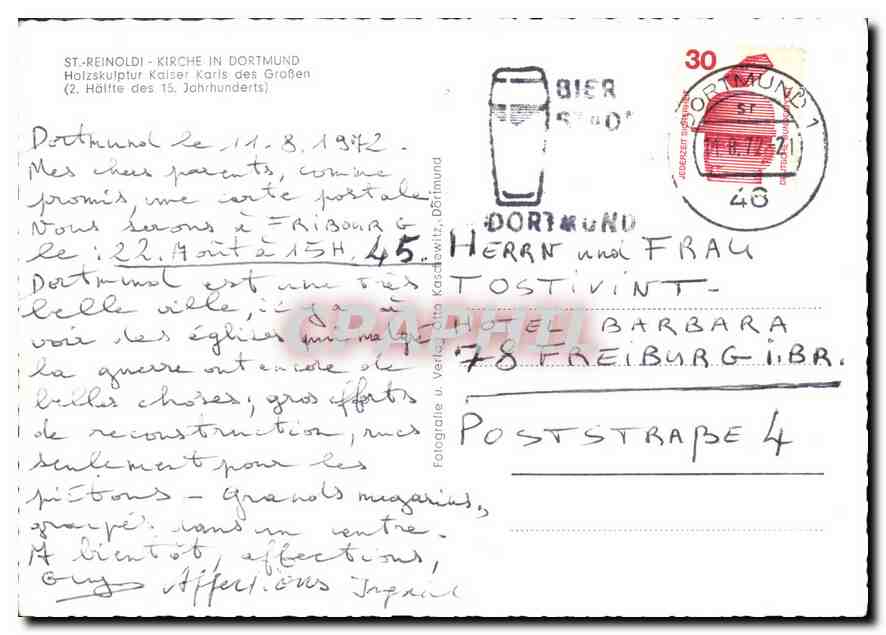 ST.-REINOLDI - KIRCHE IN DORTMUND
Holzskulptur Kaiser Karls des Großen
(2. Hälfte des 15. Jahrhunderts)
Dortmund le 11.8.1972.
Mes chers parents, comme
promis, une carte postale
Nous serons à FRIBOURG
le : 22. Août à 15H. 45.
Dortmund est une très
belle ville, il y a à
voir des églises qui malgré
la guerre ont encore de
belles choses, gros efforts
de reconstruction, rues
seulement pour les
piétons - Grands magasins,
groupés dans un centre.
A bientôt, affections,
Guy Affections Ingrid
Fotografie u. Verlag Otto Kaschewitz, Dortmund
BIER
STADT
DORTMUND
30
JEDERZEIT SICHERHEIT
DEUTSCHE BUNDESPOST
DORTMUND 1
sr
11.8.72-21
46
HERRN und FRAU
TOSTIVINT-
HOTEL BARBARA
78 FREIBURG i.BR.
POSTSTRAßE 4
CPAPHIL